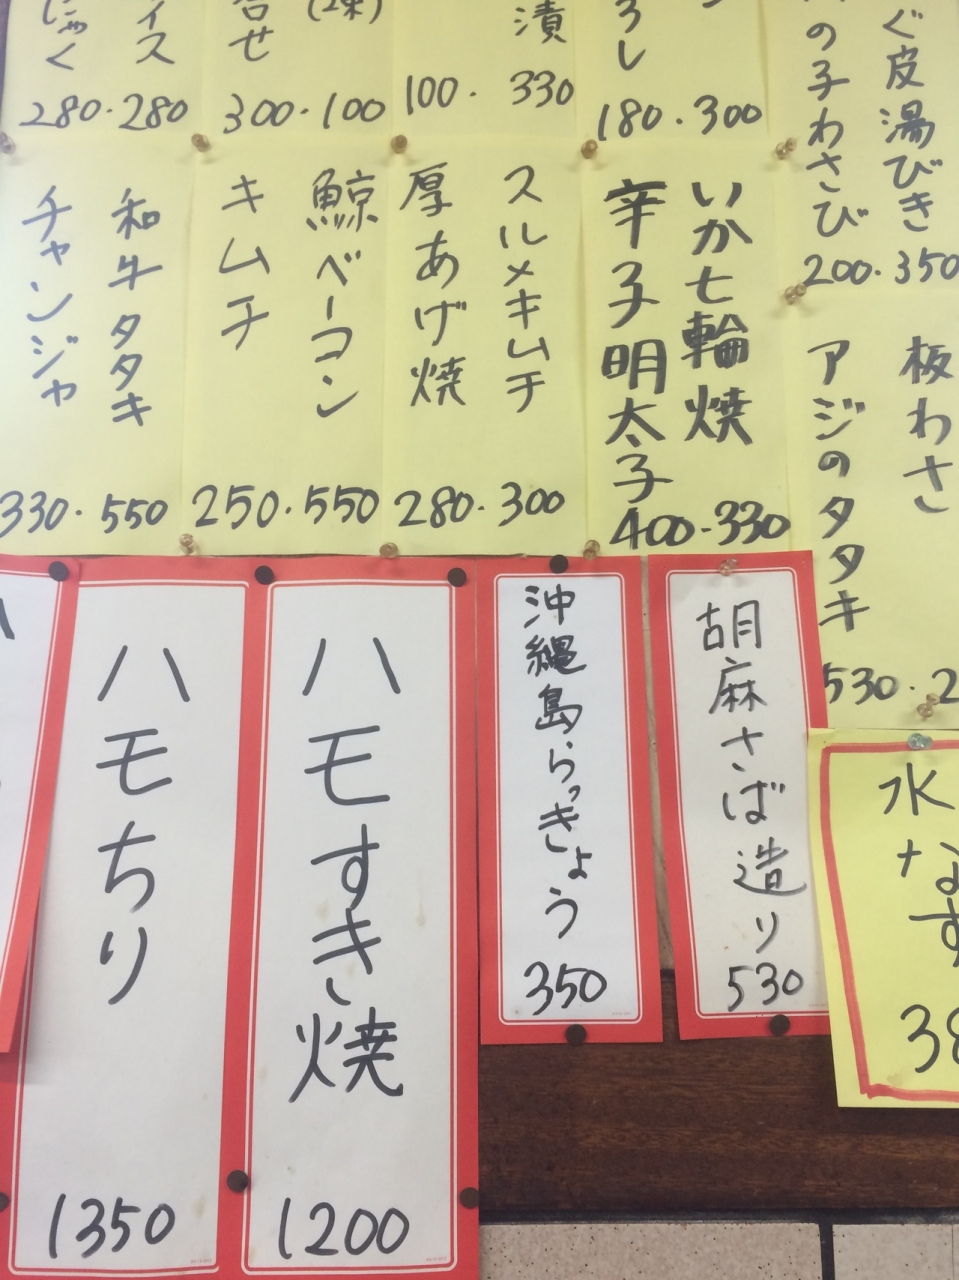 ぐ皮湯びき
350
の子わさび
200.
ろし
300
180.
漬
330
100.
(2束)
100
合せ
300.
イス
280
にゃく
280.
いか七輪焼
330
辛子明太子
400.
スルメキムチ
300
厚あげ焼
280.
鯨ベーコン
550
キムチ
250.
和牛タタキ
550
チャンジャ
330.
板わさ
アジのタタキ
530.
水なす
胡麻さば造り
530
沖縄島らっきょう
350
ハモすき焼
1200
ハモちり
1350